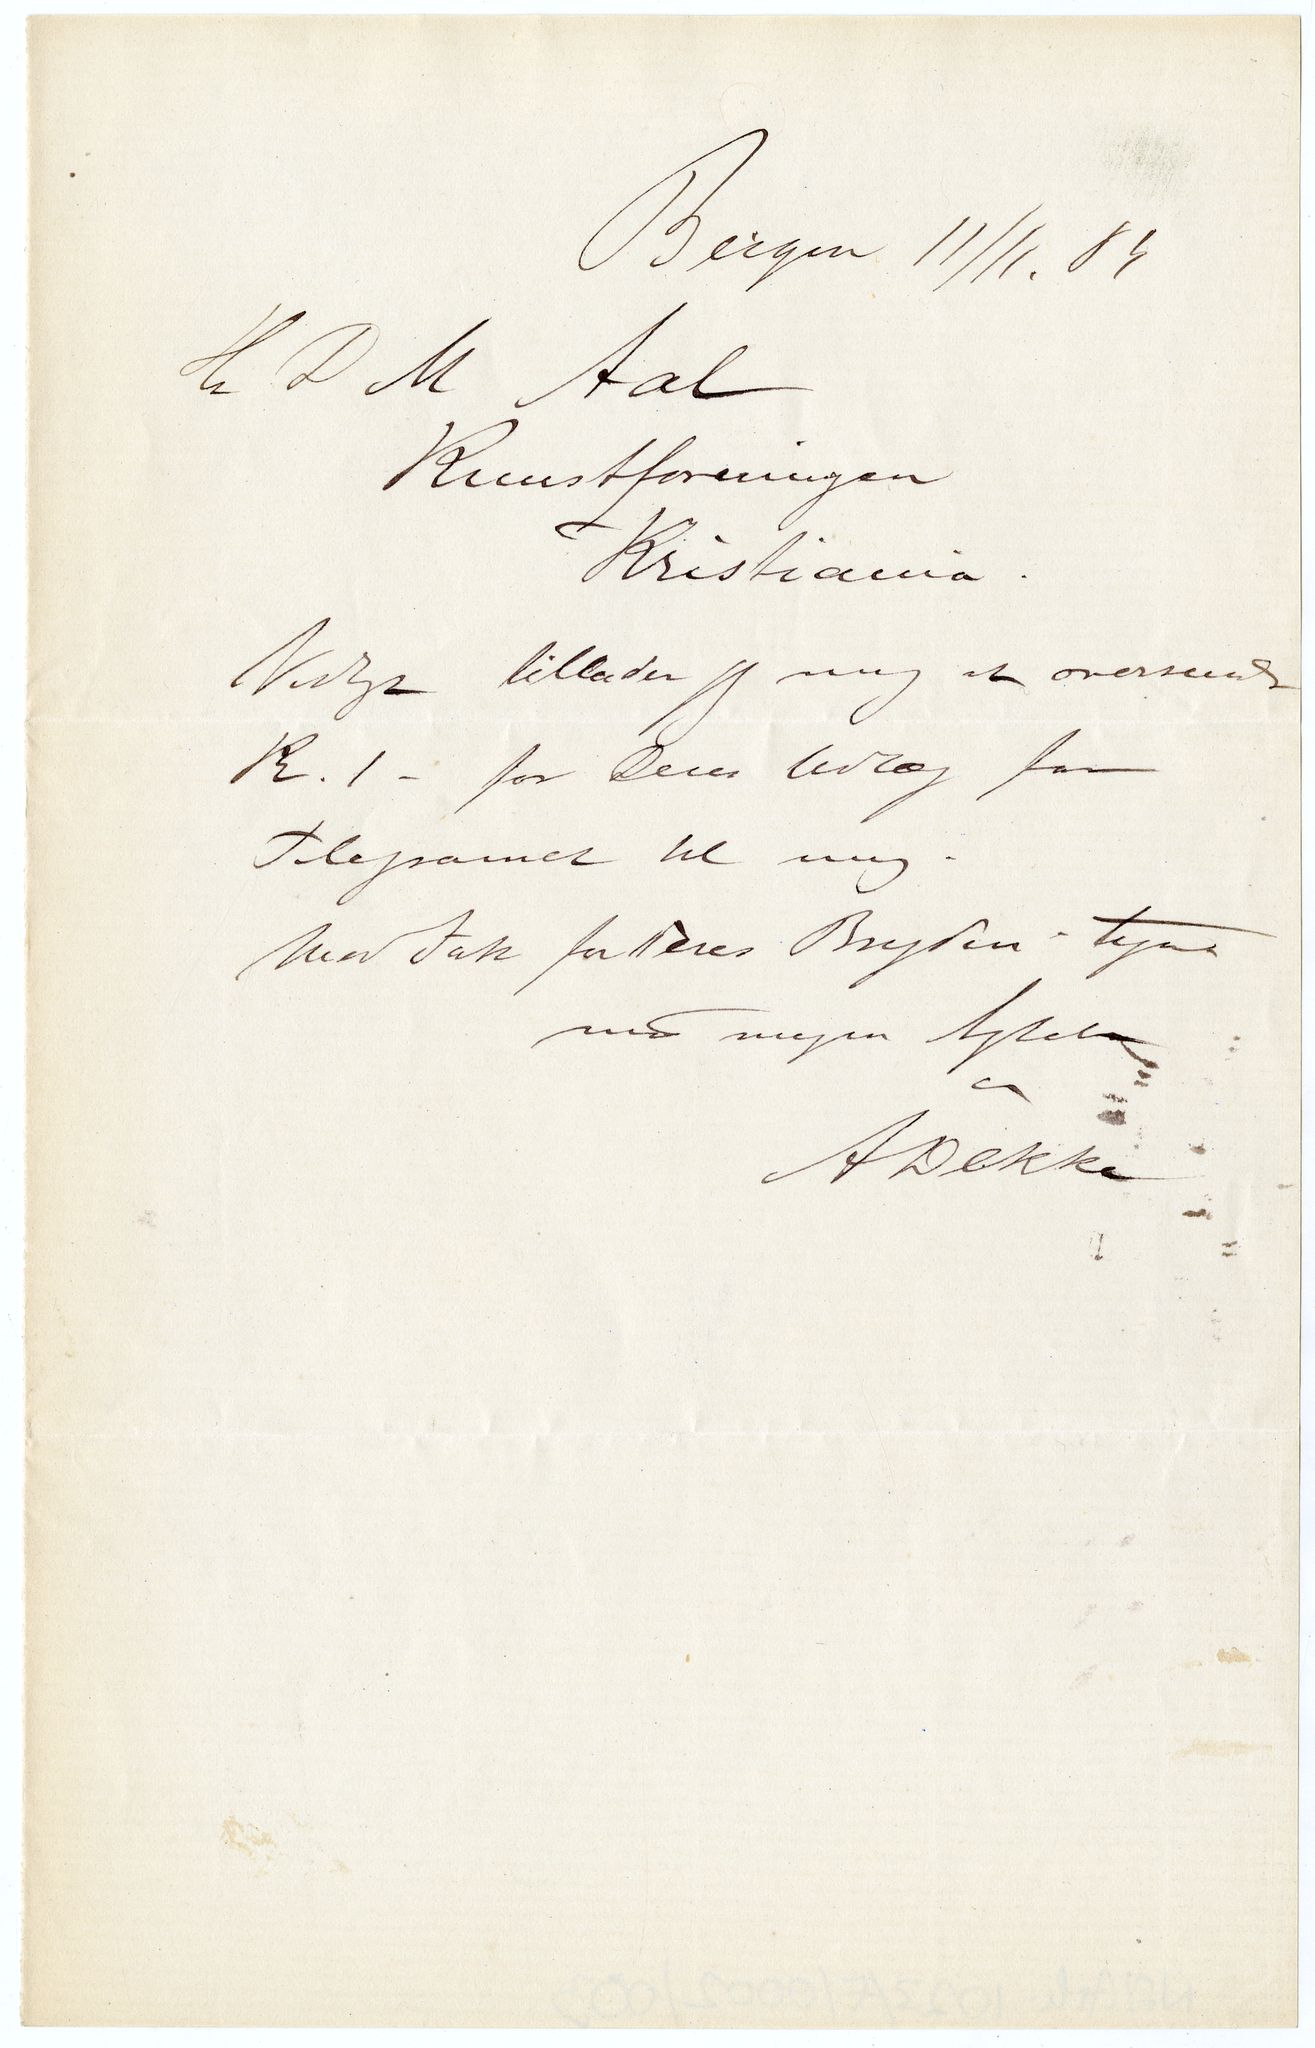 Bergen 11/11. 84
Hr D M Aal
Kunstforeningen
Kristiania.
Vedlagt tillader jeg mig at oversende
Kr. 1 - for Deres Udlæg for
Telegramet til mig.
Med Tak for Deres Bryderi - tegner
med megen Agtelse
A Dekke